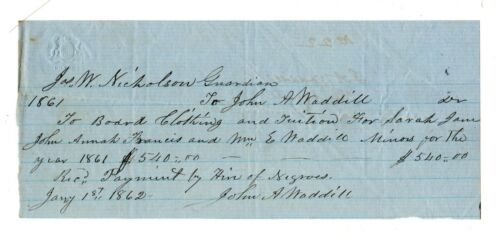 Jas W. Nicholson Guardian
1861 To John A Waddill Dr
To Board Clothing and Tuition For Sarah Jane
John Annah Francis and Wm E Waddill Minors for the
year 1861 $540.00 — — $540.00
Recd Payment by Hire of Negroes.
Jany 1st, 1862 John A Waddill